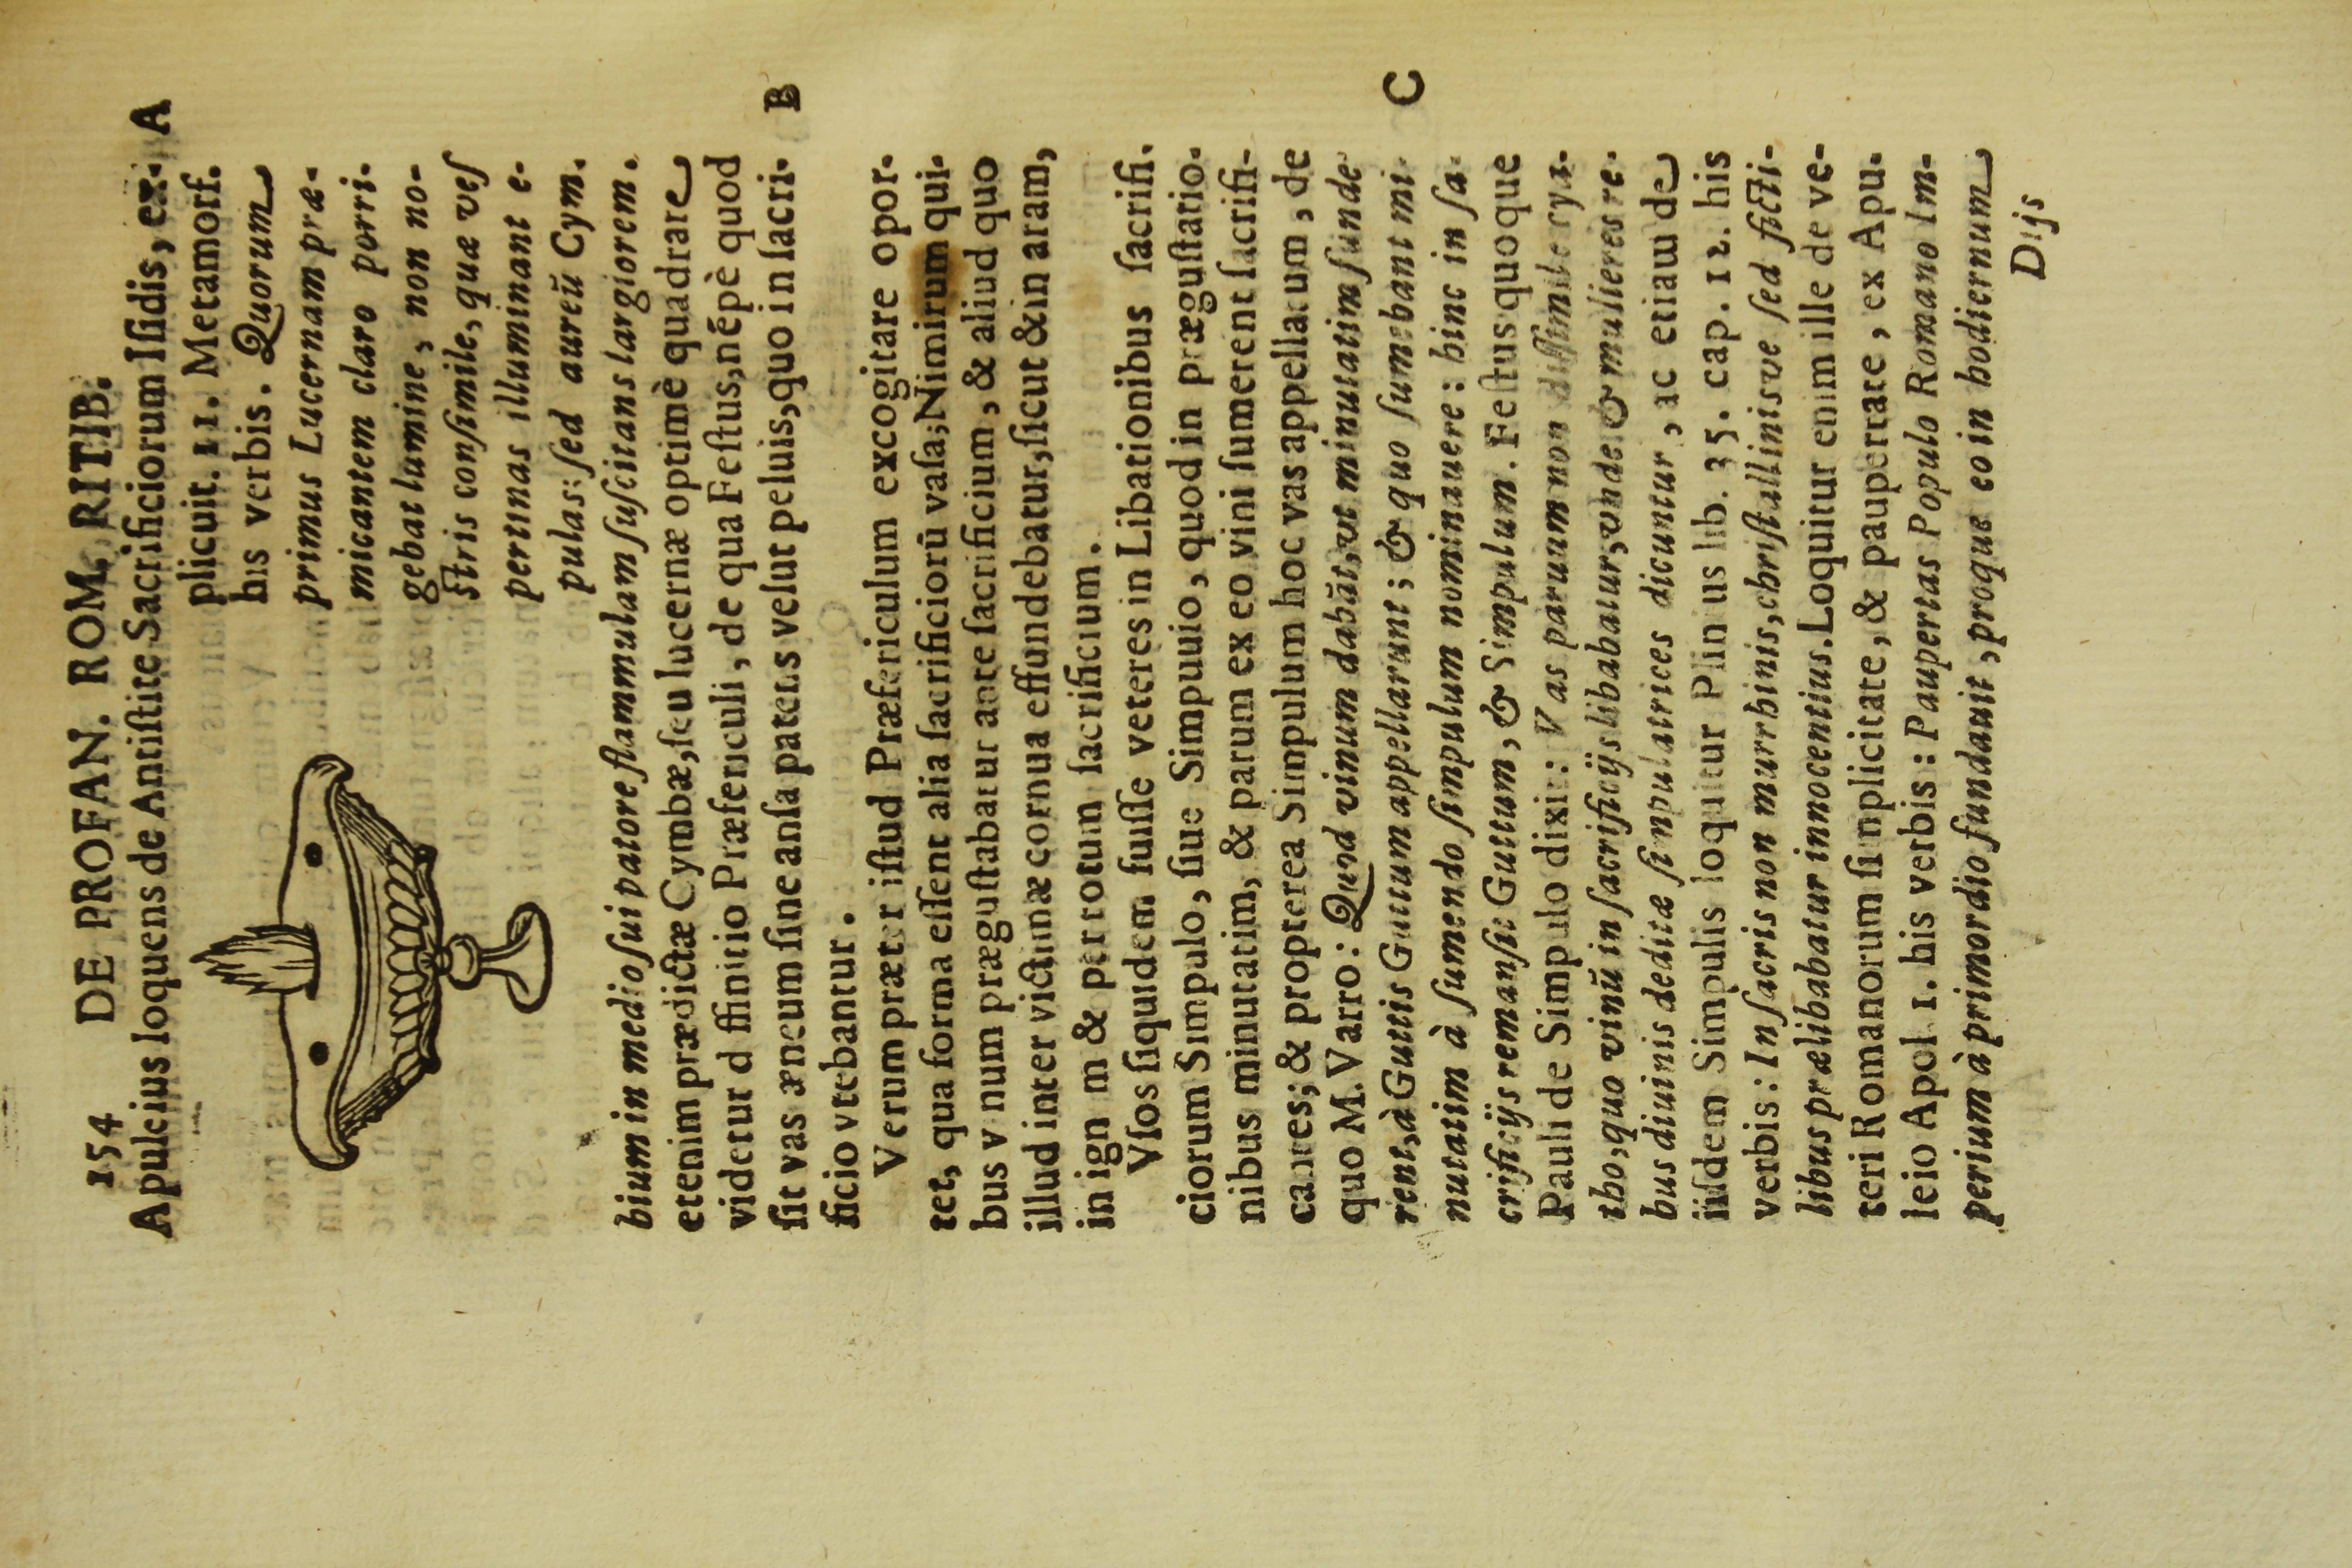 154 DE PROFAN. ROM. RITIB.
Apuleius loquens de Antiſtite Sacrificiorum Iſidis, ex- A
plicuit. 11. Metamorf.
his verbis. Quorum
primus Lucernam præ-
micantem claro porri-
gebat lumine, non no-
ſtris conſimile, quæ veſ
pertinas illuminant e-
pulas: ſed aureũ Cym.
bium in medio ſui patore flammulam ſuſcitans largiorem.
etenim prædictæ Cymbæ, ſeu lucernæ optimè quadrare
videtur d ffinitio Præfericuli, de qua Feſtus, nẽpè quod
ſit vas æneum ſine anſa patens velut peluis, quo in ſacri- B
ficio vtebantur.
Verum præter iſtud Præfericulum excogitare opor-
tet, qua forma eſſent alia ſacrificiorũ vaſa; Nimirum qui-
bus v num præguſtabatur ante ſacrificium, & aliud quo
illud inter victimæ cornua effundebatur, ſicut & in aram,
in ign m & per totum ſacrificium.
Vſos ſiquidem fuiſſe veteres in Libationibus ſacrifi.
ciorum Simpulo, ſiue Simpuuio, quod in præguſtatio-
nibus minutatim, & parum ex eo vini ſumerent ſacrifi-
cantes; & propterea Simpulum hoc vas appellatum, de
quo M. Varro: Quod vinum dabãt, vt minutatim funde
rent, à Guttis Guttum appellarunt; & quo ſumebant mi- C
nutatim à ſumendo ſimpulum nominauere: hinc in ſa-
crificijs remanſit Guttum, & Simpulum. Feſtus quoque
Pauli de Simpulo dixit: Vas paruum non diſſimile cya-
tho, quo vinũ in ſacrificijs libabatur, vnde & mulieres re-
bus diuinis deditæ ſimpulatrices dicuntur, ac etiam de
iiſdem Simpulis loquitur Plin us lib. 35. cap. 12. his
verbis: In ſacris non murrhinis, chriſtallinisve ſed ficti-
libus prælibabatur innocentius. Loquitur enim ille de ve-
teri Romanorum ſimplicitate, & paupertate, ex Apu-
leio Apol. 1. his verbis: Paupertas Populo Romano Im-
perium à primordio fundauit, proque eo in hodiernum
Dijs